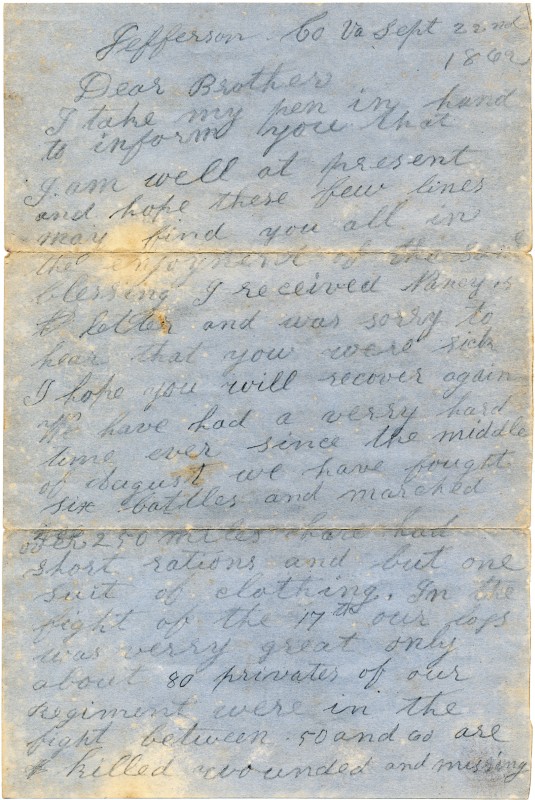 Jefferson Co Va Sept 22nd
1862
Dear Brother
I take my pen in hand
to inform you that
I am well at present
and hope these few lines
may find you all in
the enjoyment of the same
blessing I received Nancy's
letter and was sorry to
hear that you were sick
I hope you will recover again
We have had a verry hard
time ever since the middle
of August we have fought
six battles and marched
250 miles have had
short rations and but one
suit of clothing. In the
fight of the 17th our loss
was verry great only
about 80 privates of our
Regiment were in the
fight between 50 and 60 are
killed wounded and missing